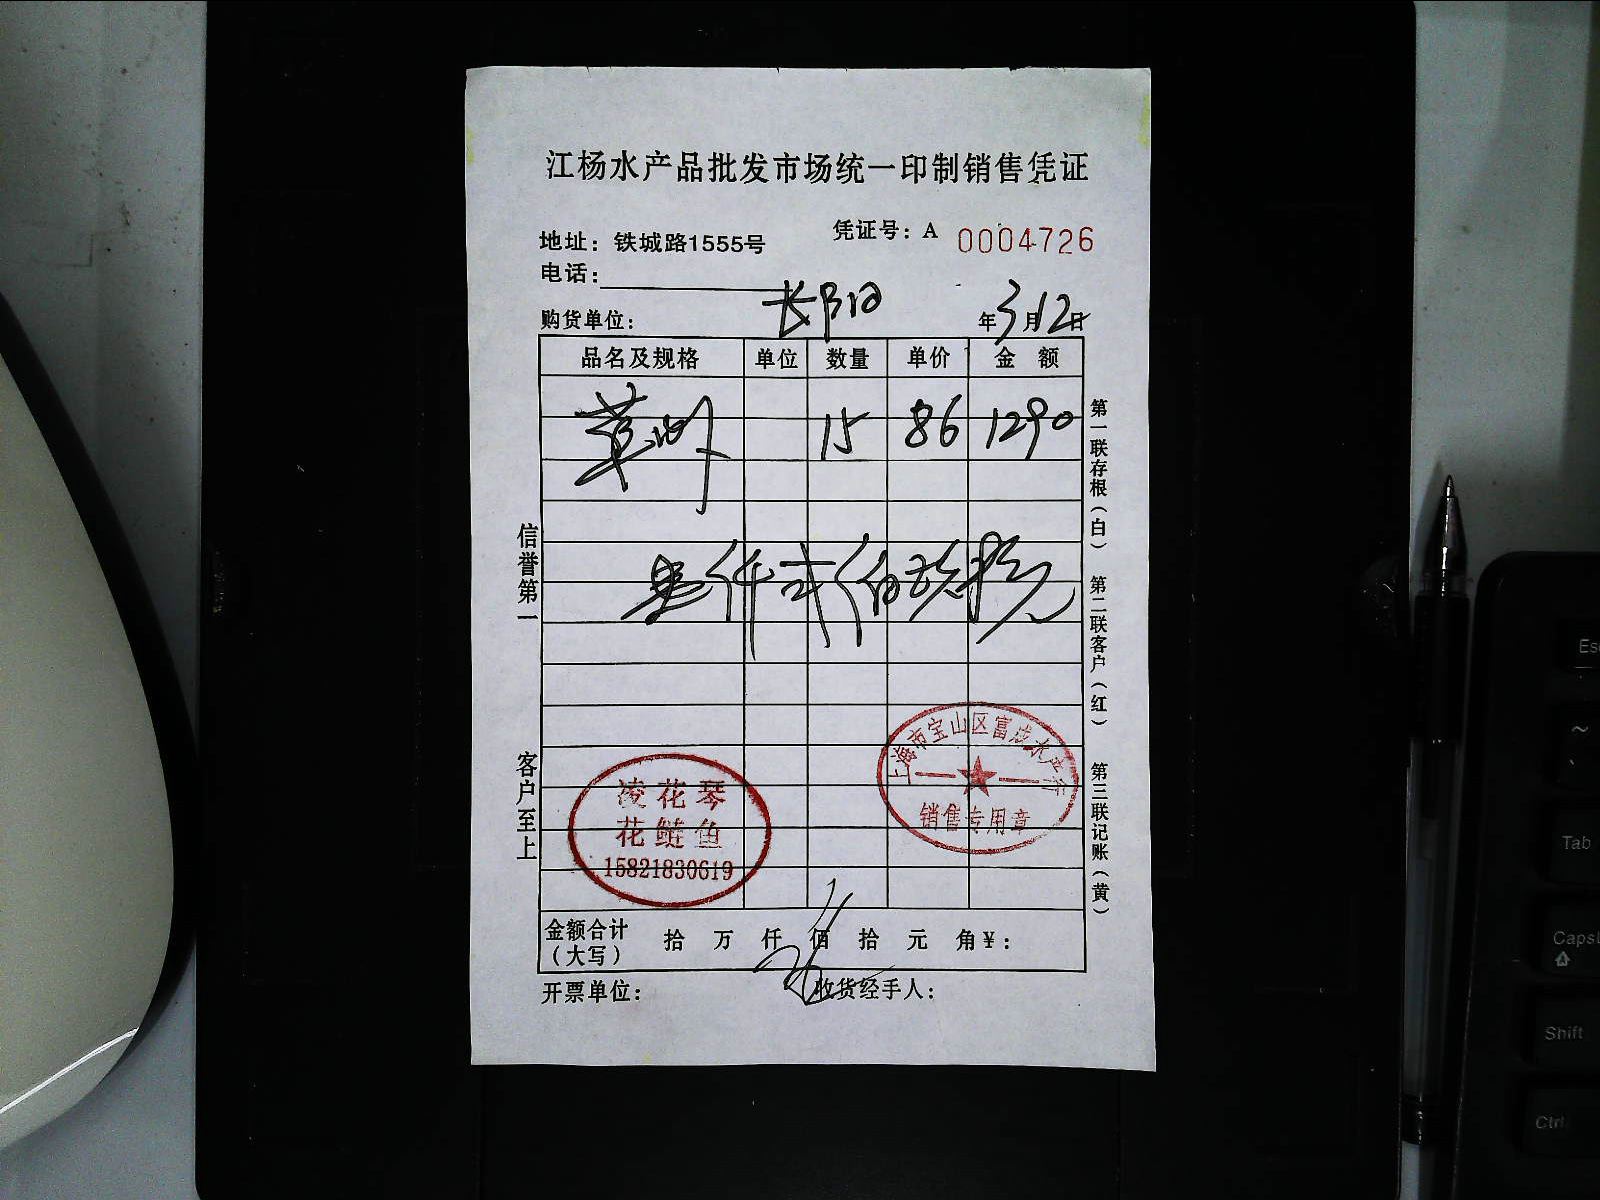 江杨水产品批发市场统一印制销售凭证
凭证号：A 0004726
地址：铁城路1555号
电话：
购货单位： 年3月12日
品名及规格 单位 数量 单价 金 额
15 86 1290
壹仟弍佰玖拾元
信誉第一
客户至上
第一联存根（白） 第二联客户（红） 第三联记账（黄）
上海市宝山区富成水产行
销售专用章
凌花琴
花鲢鱼
15821830619
金额合计
（大写）
拾 万 仟 佰 拾 元 角¥：
开票单位： 收货经手人：
Esc
~
Tab
CapsL
Shift
Ctrl